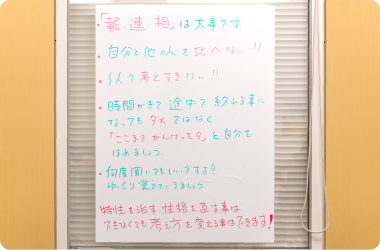 ・「報・連・相」は大事です
・自分と他の人を比べない!!
・1人で考えすぎない!!
・時間がきて途中で終わる事に
なってもダメではなく
「ここまでがんばった?」と自分を
ほめましょう。
・何度聞いてもいいですよ?
ゆっくり覚えていきましょう。
特性を治す 性格を直す事は
できなくても考え方を変える事はできます!